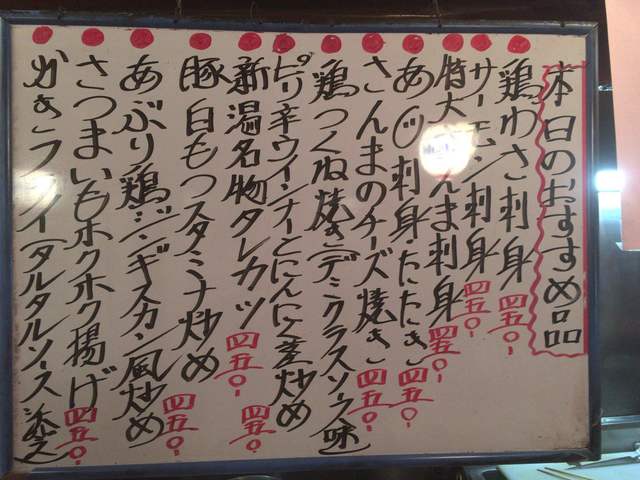 本日のおすすめ品
鶏わさ刺身 四五〇-
サーモン刺身 四五〇-
特大さんま刺身 四五〇-
あじ刺身・たたき 四五〇-
さんまのチーズ焼き 四五〇-
鶏つくね焼き(デミグラスソース味)
ピリ辛ウインナーとにんにく茎炒め
新潟名物タレカツ 四五〇-
豚白もつスタミナ炒め
あぶり鶏ジンギスカン風炒め 四五〇-
さつまいもホクホク揚げ 四五〇-
かきフライ(タルタルソース添え)